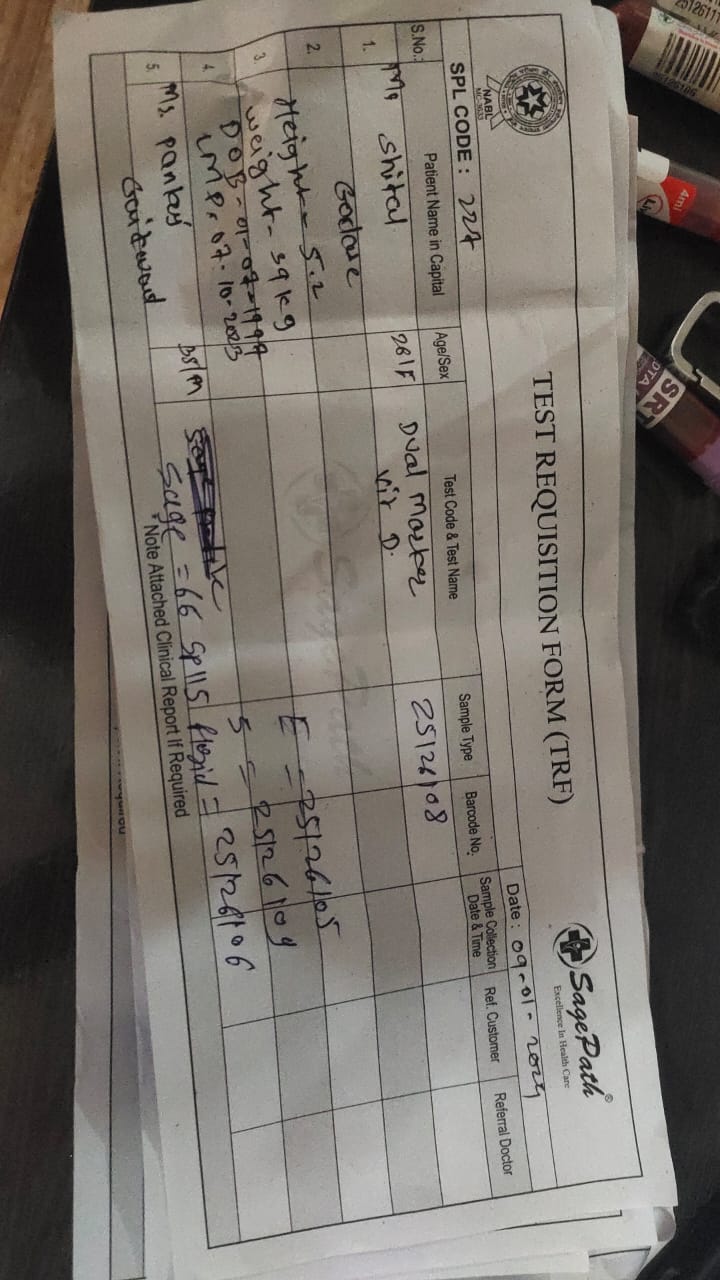 NABL
MC-3633
SagePath®
Excellence In Health Care
TEST REQUISITION FORM (TRF)
SPL CODE : 227
Date : 09-01-2024
S.No.: Patient Name in Capital Age/Sex Test Code & Test Name Sample Type Barcode No. Sample Collection Date & Time Ref. Customer Referral Doctor
1. Ms Shital 26/F Dual Marker 25126108
Vit D.
2. Height - 5.2 E = 25126105
3. weight - 59 kg S = 25126109
DOB - 01-07-1997
4. LMP. 07-10-2023
5. Ms. Pankaj 35/M Sage = 66 Sp115 Flori'd = 25126106
Gaikwad
*Note Attached Clinical Report If Required
4ml
SRL
25126106